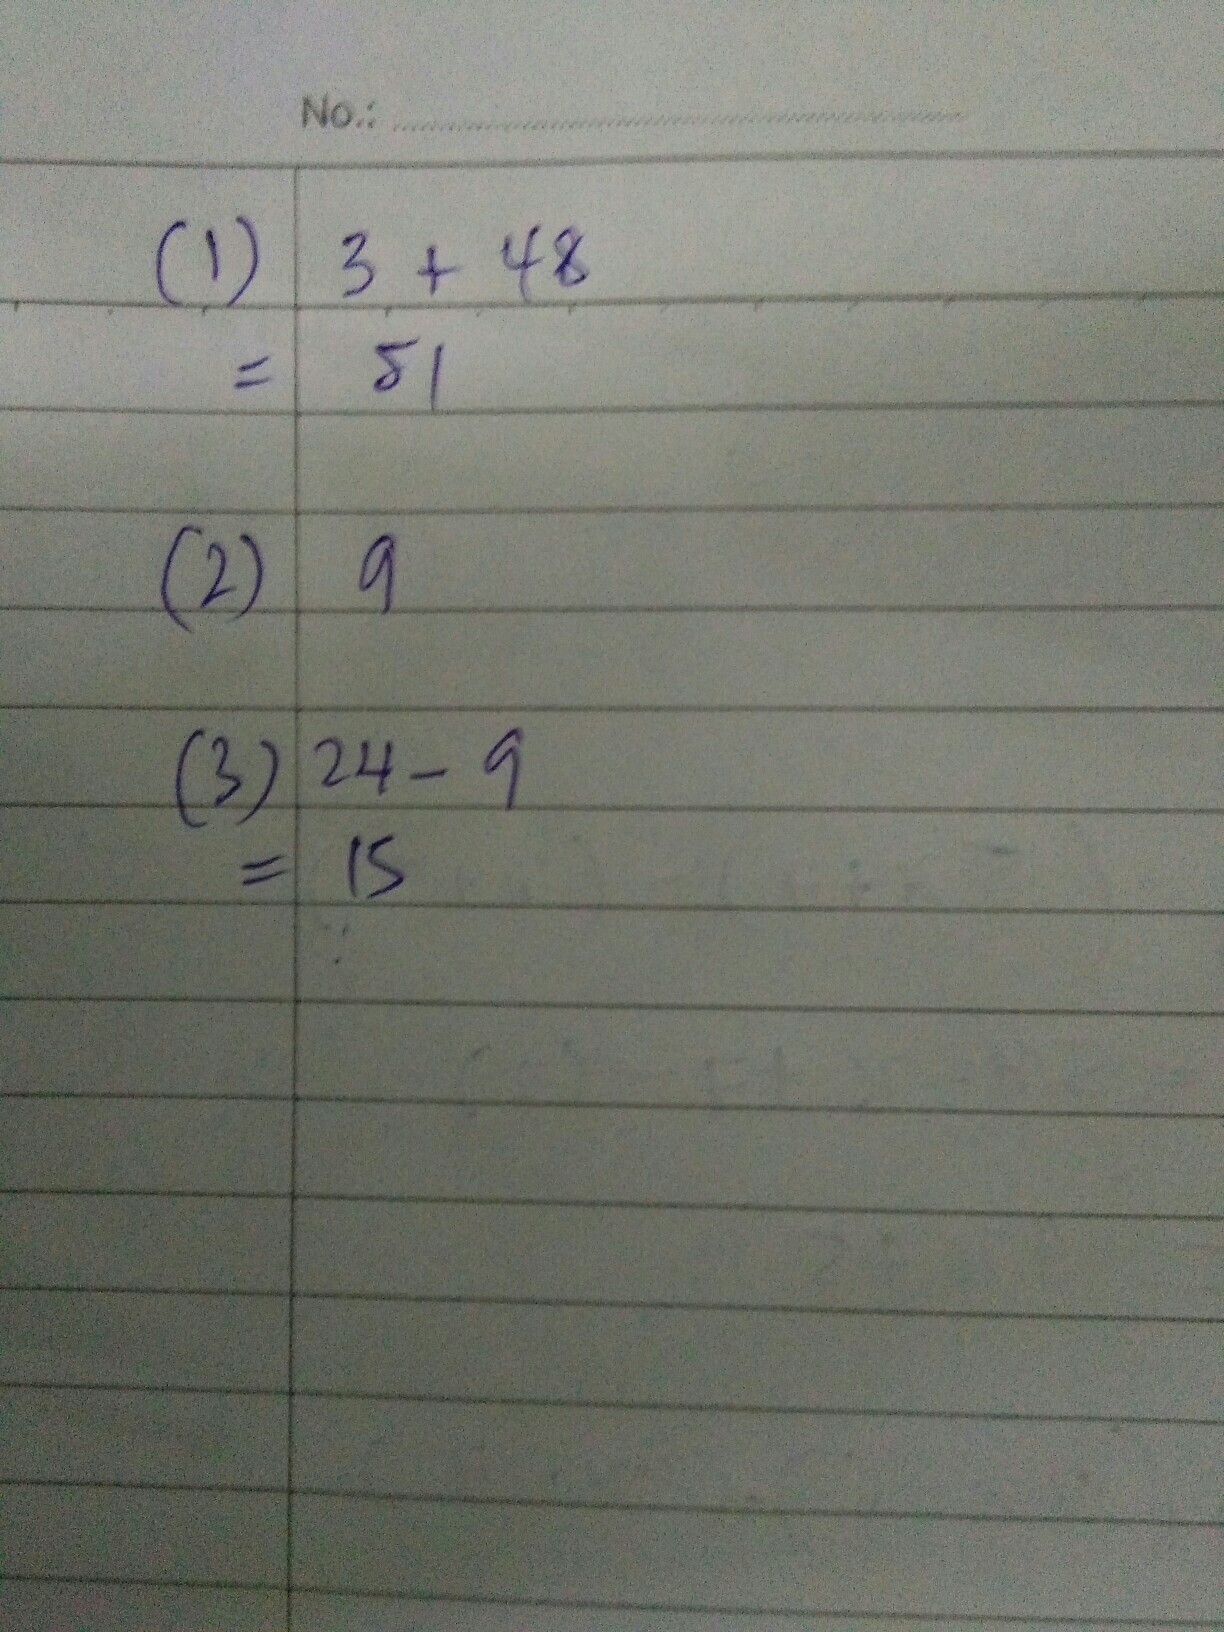 No.:
(1) 3 + 48
= 51
(2) 9
(3) 24 - 9
= 15